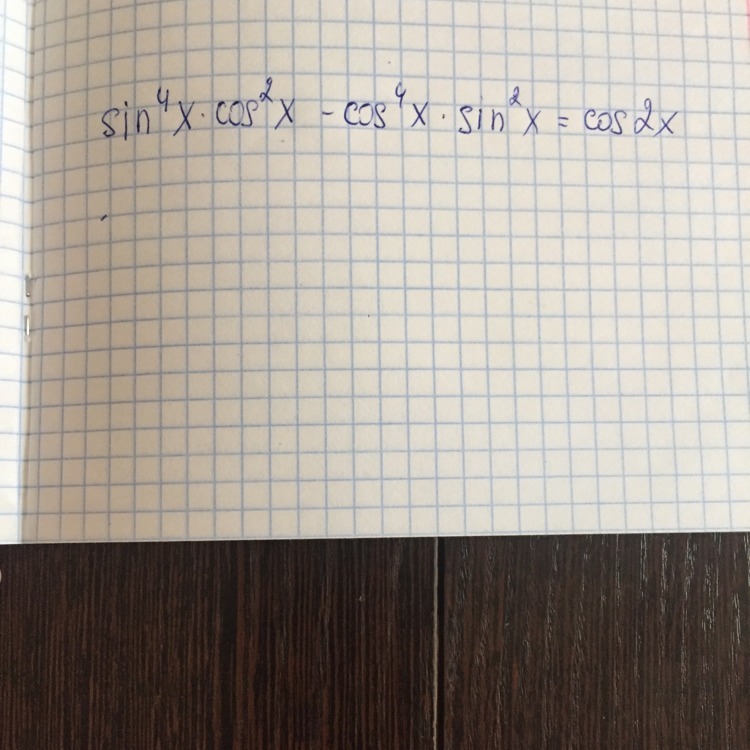 sin⁴x · cos²x - cos⁴x · sin²x = cos2x